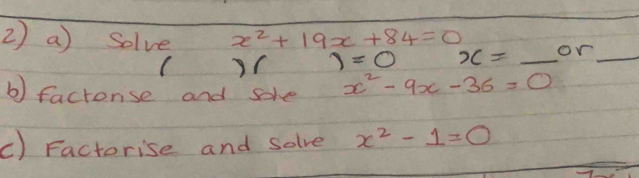 2) a) Solve x² + 19x + 84 = 0
( )( ) = 0 x = __ or __
b) factorise and solve x² - 9x - 36 = 0
c) Factorise and solve x² - 1 = 0